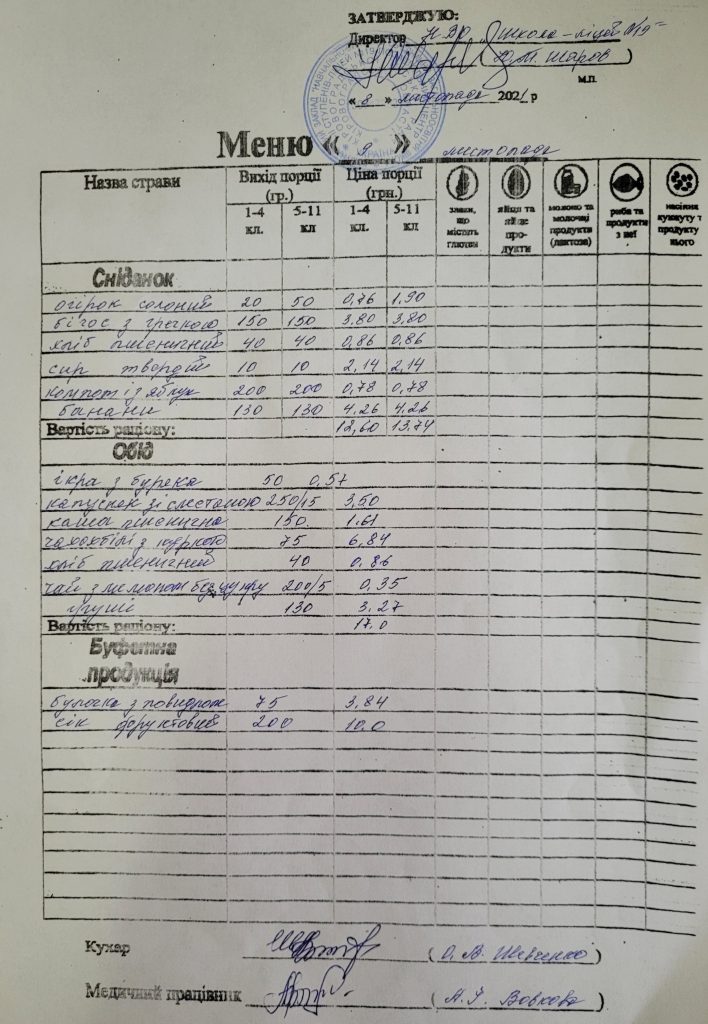 ЗАТВЕРДЖУЮ:
Директор Н.ВО "Школа-ліцей №19"
(Ю.М. Шаров)
м.п.
« 8 » листопада 2021 р
Меню « 9 » листопада
Назва страви Вихід порції (гр.) Ціна порції (грн.) злаки, що містять глютен яйця та яйце продукти молоко та молочні продукти (лактоза) риба та продукти з неї насіння кунжуту т продукту нього
1-4 кл. 5-11 кл 1-4 кл. 5-11 кл.
Сніданок
огірок солоний 20 50 0,76 1,90
бігос з гречкою 150 150 3,80 3,80
хліб пшеничний 40 40 0,86 0,86
сир твердий 10 10 2,14 2,14
компот із яблук 200 200 0,78 0,78
банани 130 130 4.26 4.26
Вартість раціону: 12,60 13.74
Обід
ікра з буряка 50 0,57
капусняк зі сметаною 250/15 3,50
каша пшенична 150. 1.61
чахохбілі з куркою 75 6,84
хліб пшеничний 40 0.86
чай з лимоном без цукру 200/5 0,35
груші 130 3.27
Вартість раціону: 17.0
Буфетна
продукція
булочка з повидлом 75 3,84
сік фруктовий 200 10.0
Кухар (О. В. Шевченко)
Медичний працівник (А. І. Вовкова)